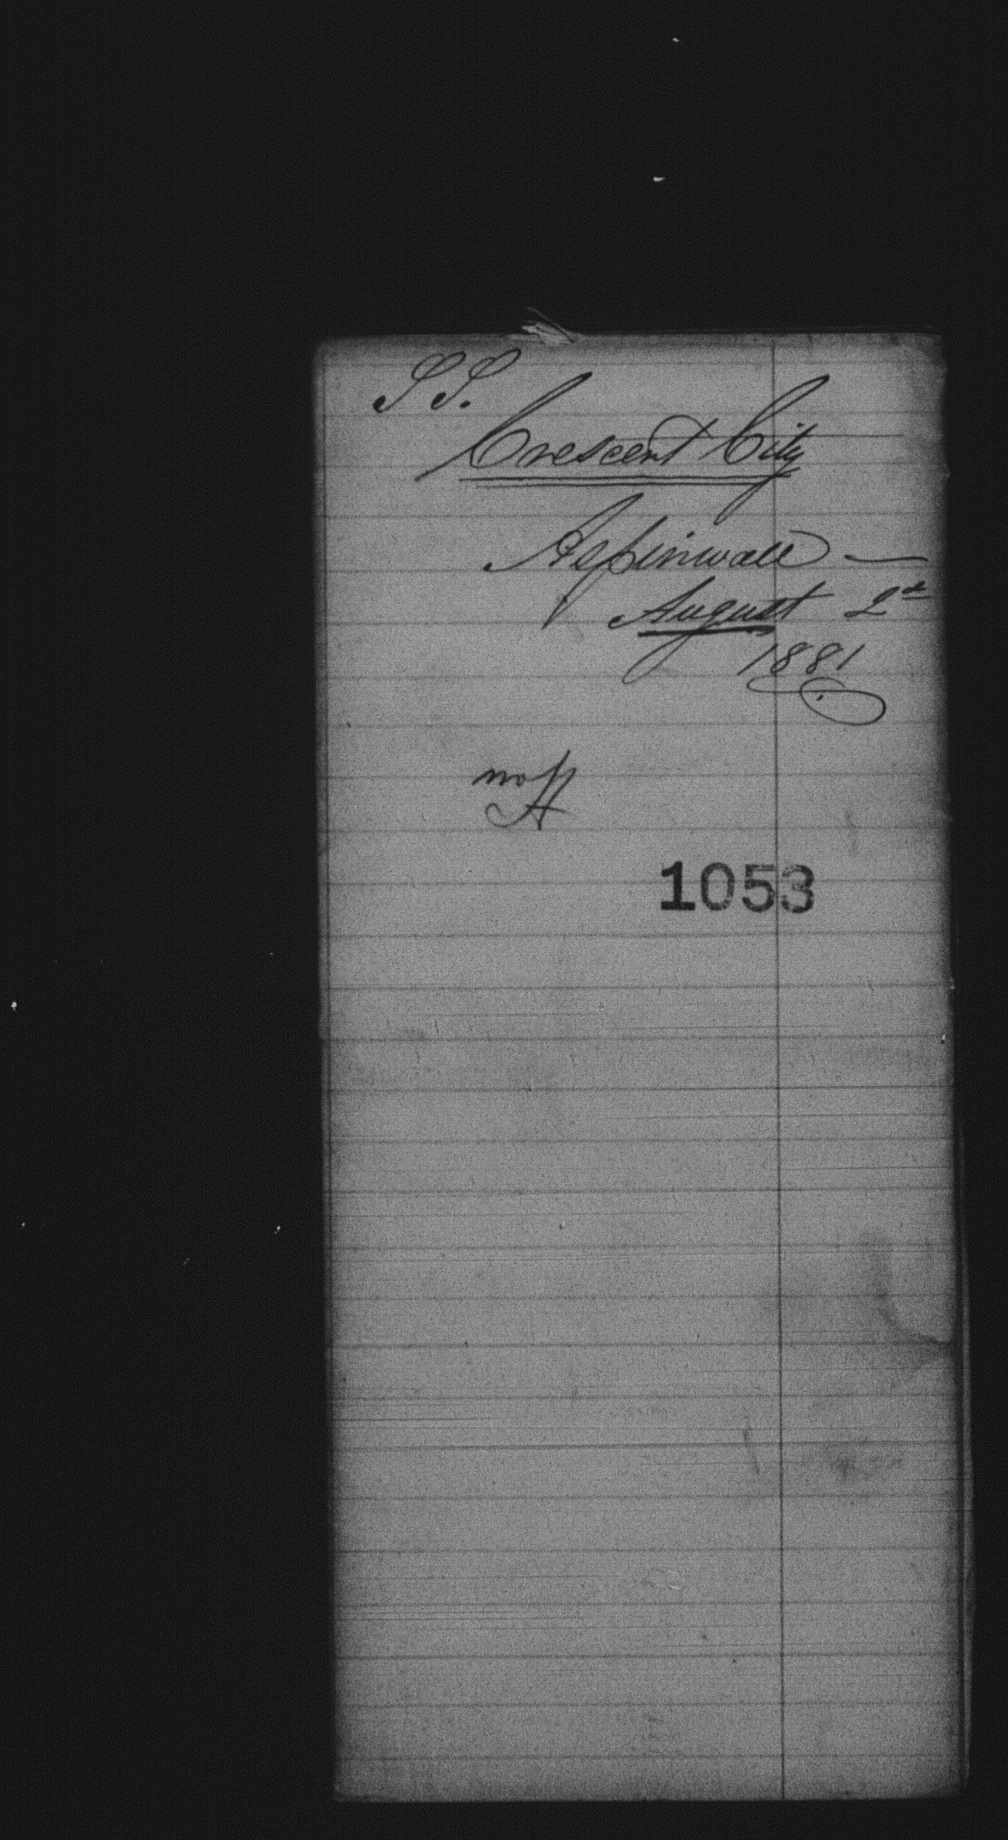 SS.
Crescent City
Aspinwall —
August 2d
1881
1053